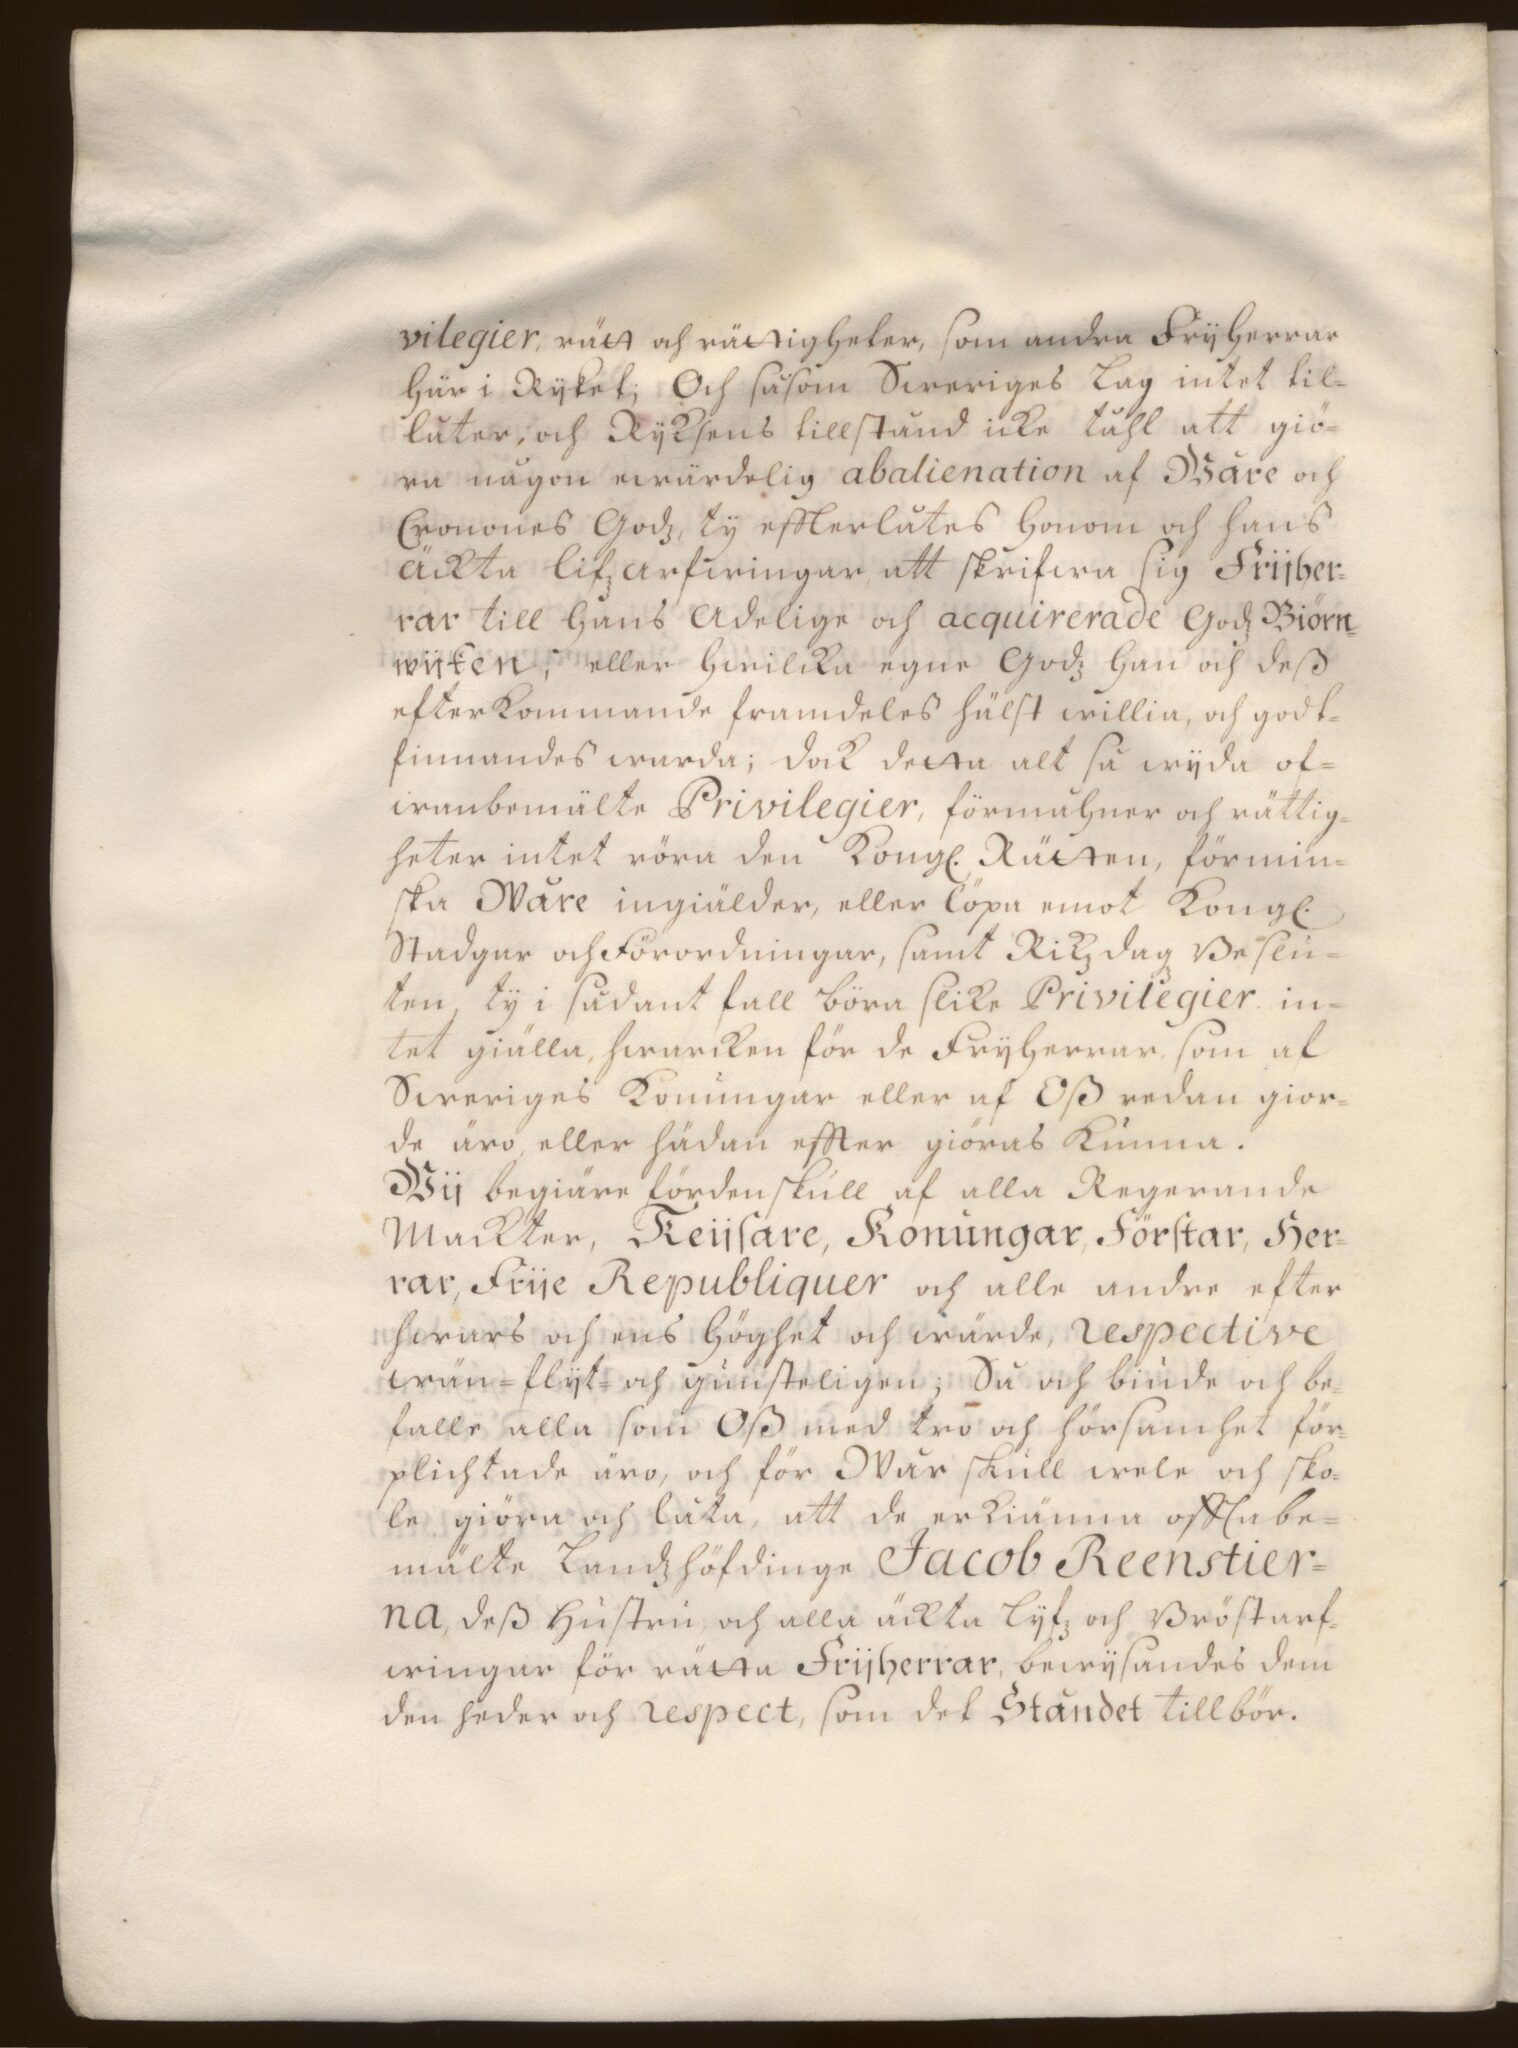 vilegier, rätt och rättigheter, som andra Frÿherrar
här i Rÿket; Och såsom Sweriges Lag intet til=
låter, och Rÿksens tillstånd icke tåhl att giö=
ra någon ewärdelig abalienation af Wåre och
Cronones Godz, tÿ effterlåtes honom och hans
ächta lifz arfwingar att skrifwa sig Frijher=
rar till hans Adelige och acquirerade Godz Biörn=
wijken, eller hwilcka egne Godz han och deß
efterkommande framdeles hälst willia, och godt=
finnandes warda; dock detta alt så wÿda of=
wanbemälte Privilegier, förmåhner och rättig=
heter intet röra den Kongl. Rätten, förmin=
ska Wåre ingiälder, eller löpa emot Kongl.
Stadgar och Förordningar, samt Rikzdag Beslu=
ten, tÿ i sådant fall böra slike Privilegier in=
tet giälla, hwarcken för de Frÿherrar, som af
Sweriges Konungar eller af Oß redan gior=
de äro, eller hädan effter giöras kunna.
Wij begiäre fördenskull af alla Regerande
Mackter, Keijsare, Konungar, Förstar, Her=
rar, Frije Republiquer och alle andre efter
hwars och ens höghet och wärde, respective
wän= flÿt= och gunsteligen; Så och biude och be=
falle alla som Oß med tro och hörsamhet för=
plichtade äro, och för Wår skull wele och sko=
le giöra och låta, att de erkiänna offtabe=
mälte Landzhöfdinge Jacob Reenstier=
na, deß Hustru och alla äckta Lÿfz och Bröstarf=
wingar för rätta Frijherrar, bewÿsandes dem
den heder och respect, som det Ståndet tillbör.